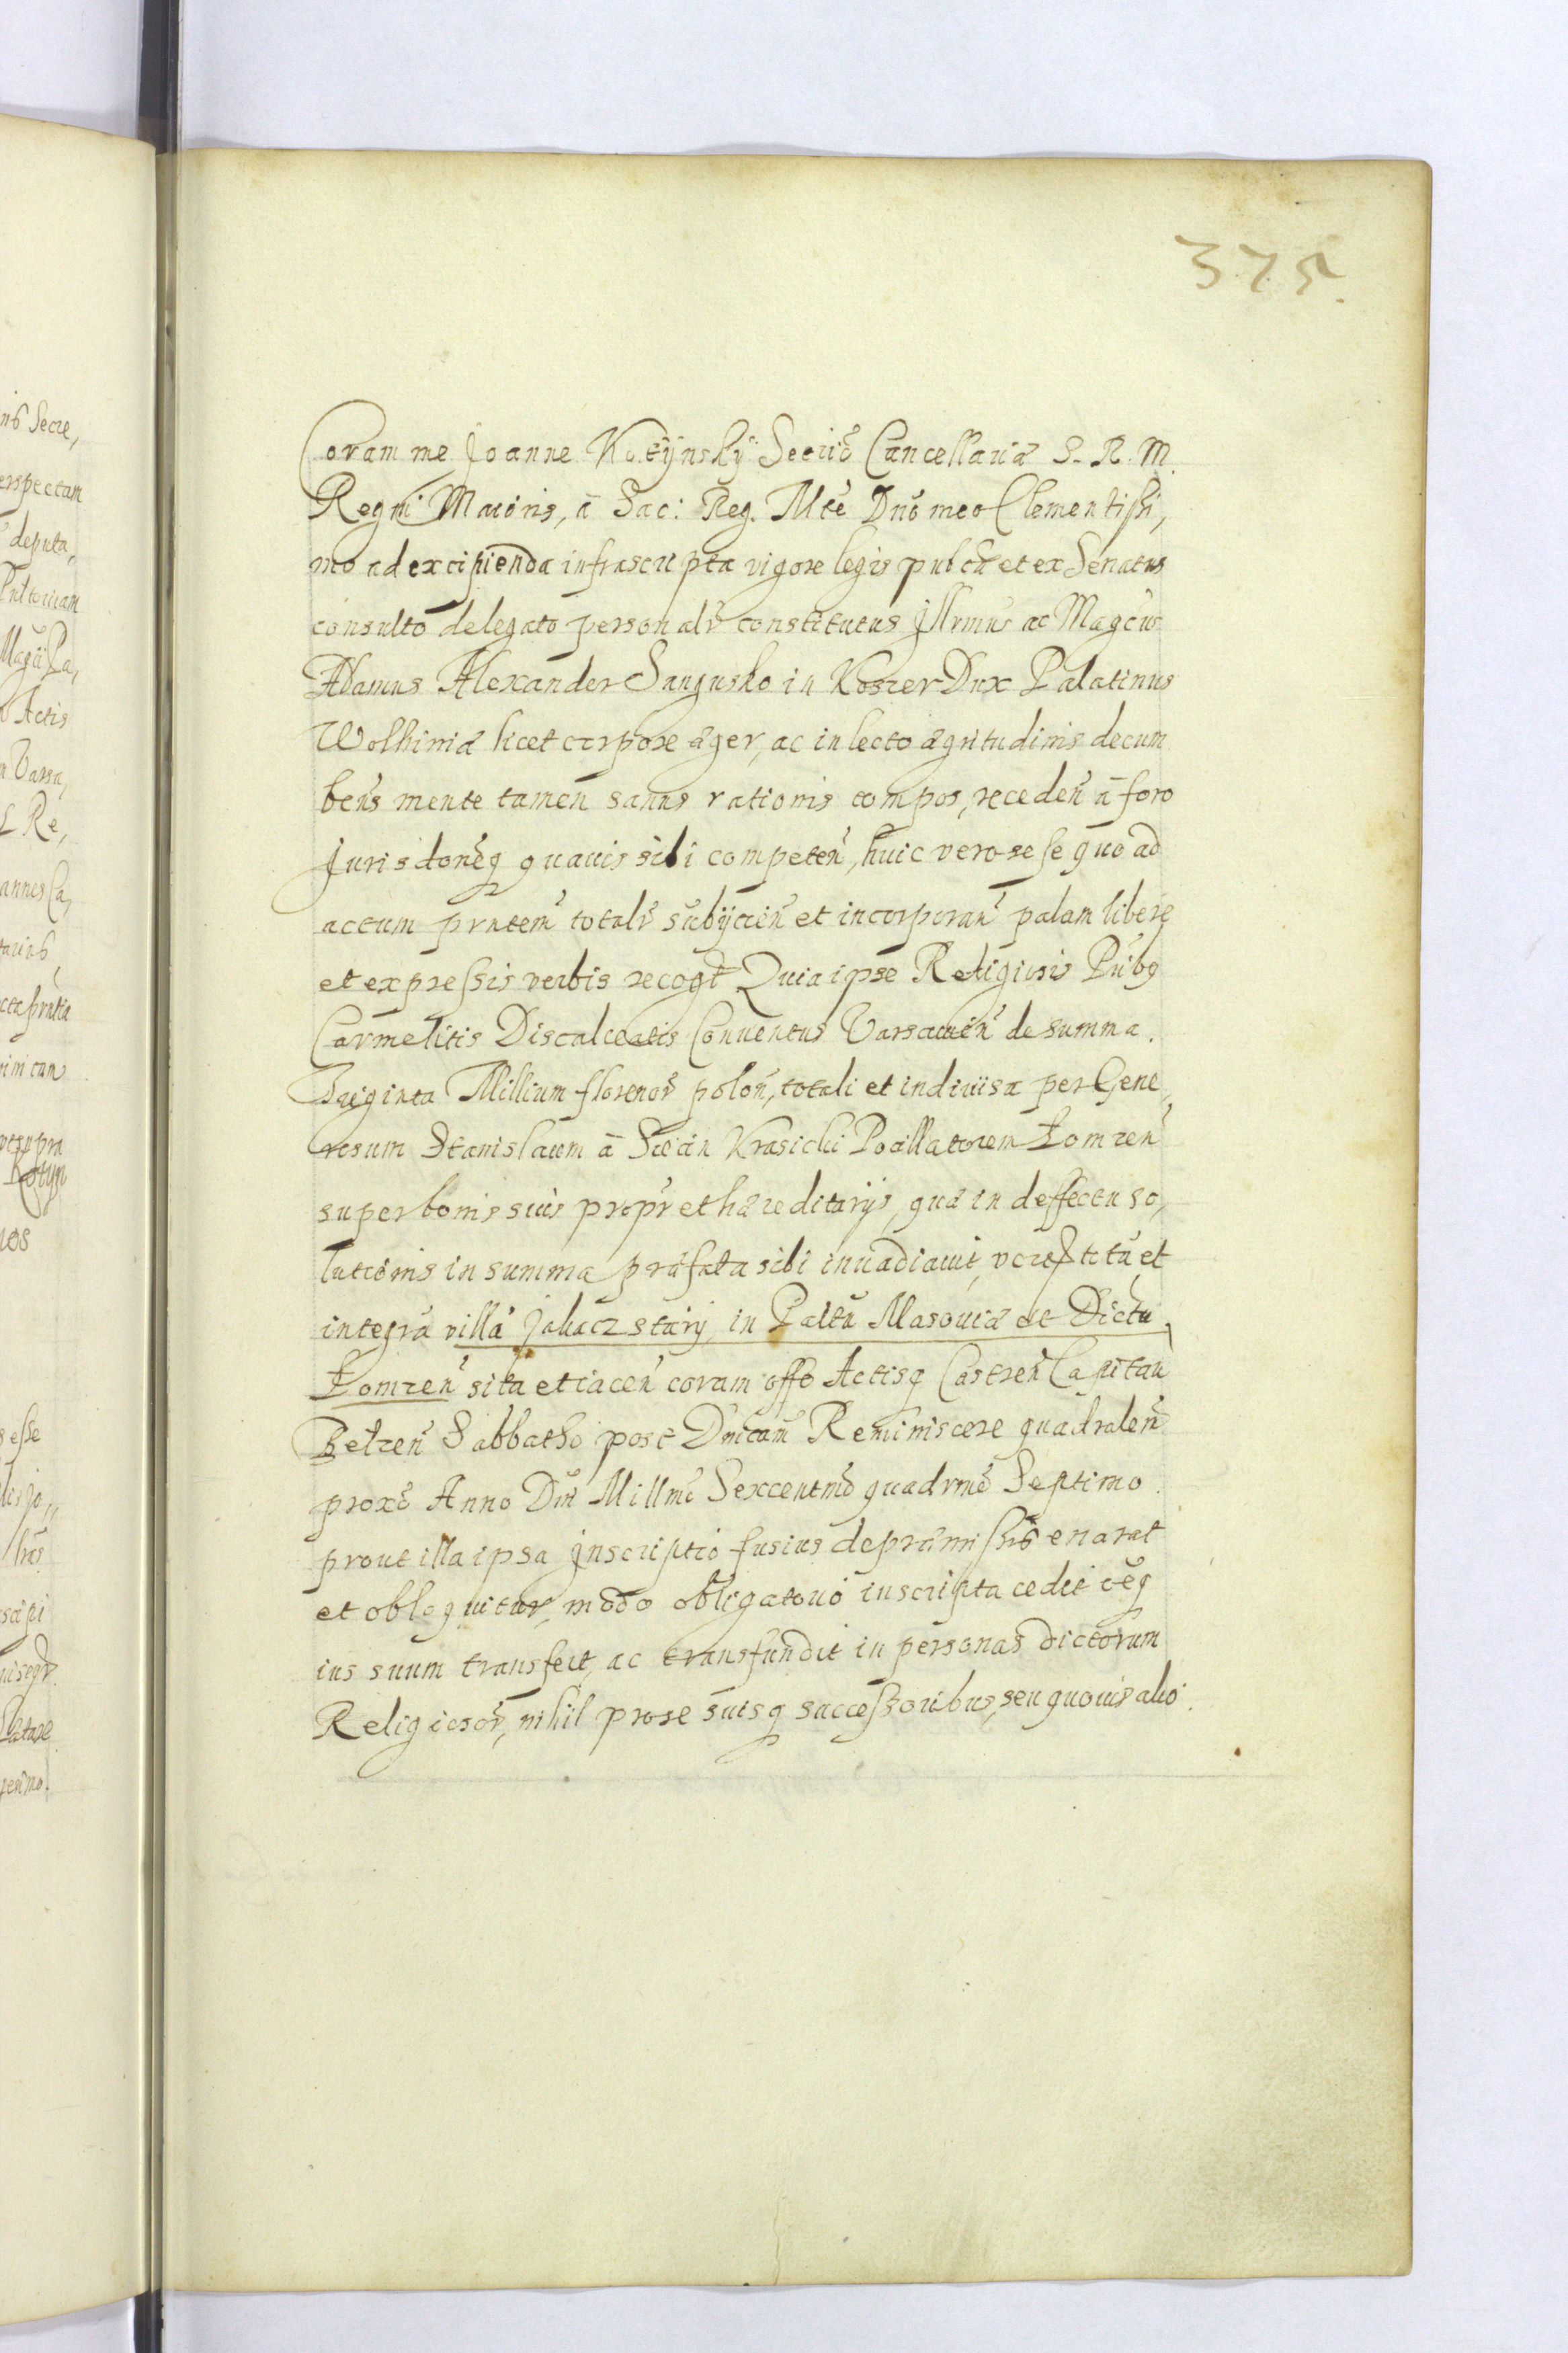 375.
Coram me Joanne Kotÿnskÿ Secrio Cancellariæ S. R. M.
Regni Maioris, ā Sac: Reg. Mte Dno meo Clementissi,
mo ad excipienda infrascripta vigore legis publcæ et ex Senatus
consulto delegato personalr constitutus Jllrmus ac Magcus
Adamus Alexander Sangusko in Koszer Dux Palatinus
Wolhiniæ licet corpore æger, ac in lecto ægritudinis decum
bens mente tamen sanus rationis compos, receden ā foro
Jurisdoneq quauis sibi competen, huic vero sese quo ad
actum prntem totalr subÿcien et incorporan palam libere
et expressis verbis recogt Quia ipse Religiosis Pribq
Carmelitis Discalceatis Conuentus Varsauien de summa
Triginta Millium florenor polon, totali et indiuisa per Gene,
rosum Stanislaum ā Siecin Krasicki Pocillatorem Łomzen
super bonis suis proprÿ et hæreditarijs, quæ in deffectu so,
lutionis in summa præfata sibi inuadiauit, tota et
integra villa Jakacz starÿ, in Paltu Masouiæ et Dictu
Łomzen sita et iacen coram offo Actisq Castren Capitan
Belzen Sabbatho post Dnicam Reminiscere quadralen
proxo Anno Dni Millmo Sexcentmo quadrmo Septimo
prout illa ipsa Jnscriptio fusius de præmissis enarat
et obloquitur, modo obligatorio inscripta cedit oeq
ius suum transfert, ac transfundit in personas dictorum
Religiosor, nihil pro se suisq successoribus, seu quouis alio